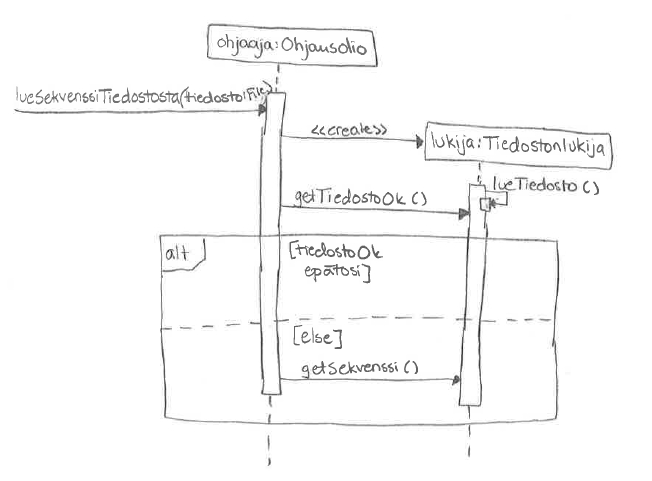 ohjaaja:Ohjausolio
lueSekvenssiTiedostosta(tiedosto:File)
<<create>>
lukija:Tiedostonlukija
lueTiedosto()
getTiedostoOk()
alt
[tiedostoOk
epätosi]
[else]
getSekvenssi()